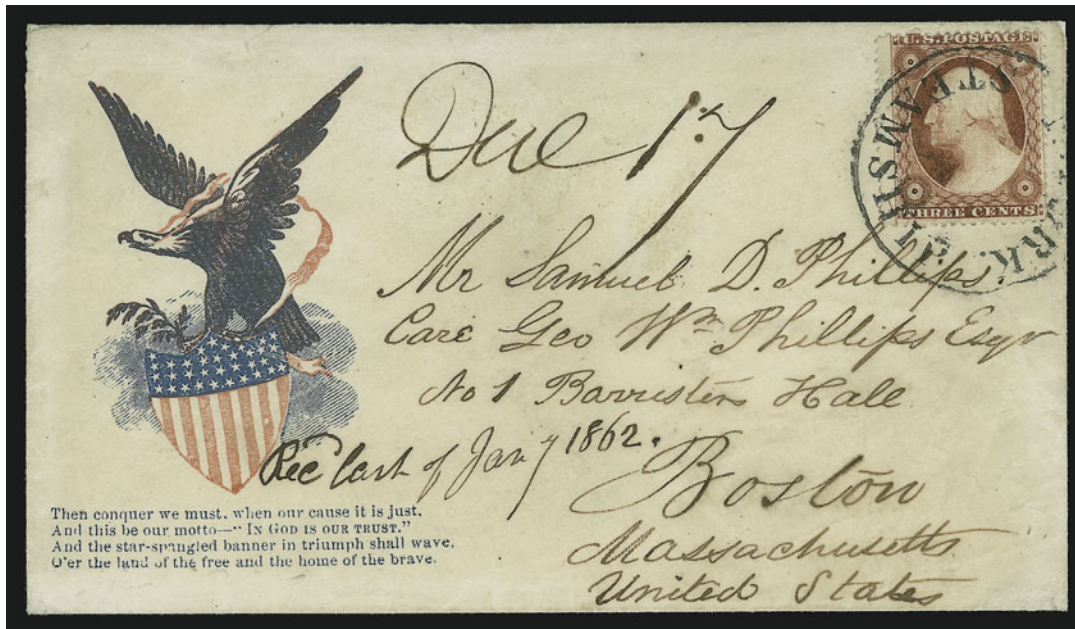 Due 17
U.S. POSTAGE
THREE CENTS
STEAMSHIP
Mr Samuel D. Phillips.
Care Geo Wm Phillips Esqr
No 1 Barristers Hall
Rec last of Jany 1862.
Boston
Massachusetts
United States
Then conquer we must, when our cause it is just,
And this be our motto—"IN GOD IS OUR TRUST."
And the star-spangled banner in triumph shall wave,
O'er the land of the free and the home of the brave.